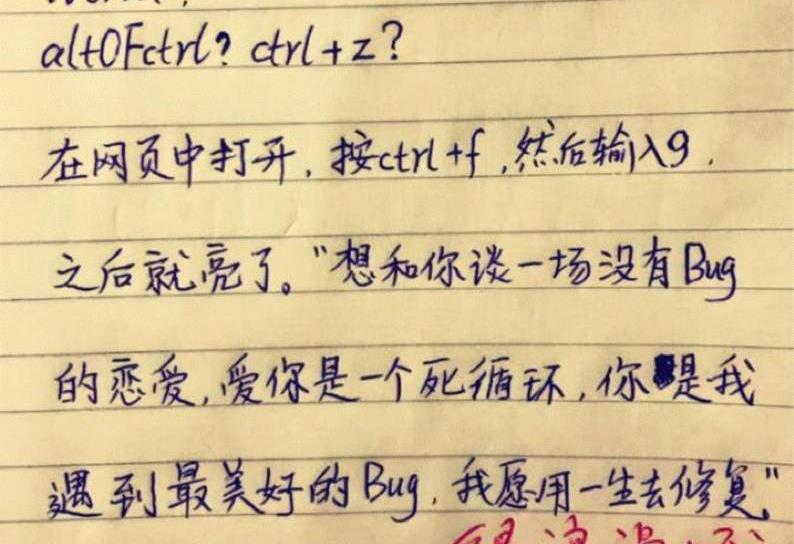 alt0Fctrl? ctrl+z?
在网页中打开，按ctrl+f，然后输入9，
之后就亮了。“想和你谈一场没有Bug
的恋爱，爱你是一个死循环，你是我
遇到最美好的Bug，我愿用一生去修复”